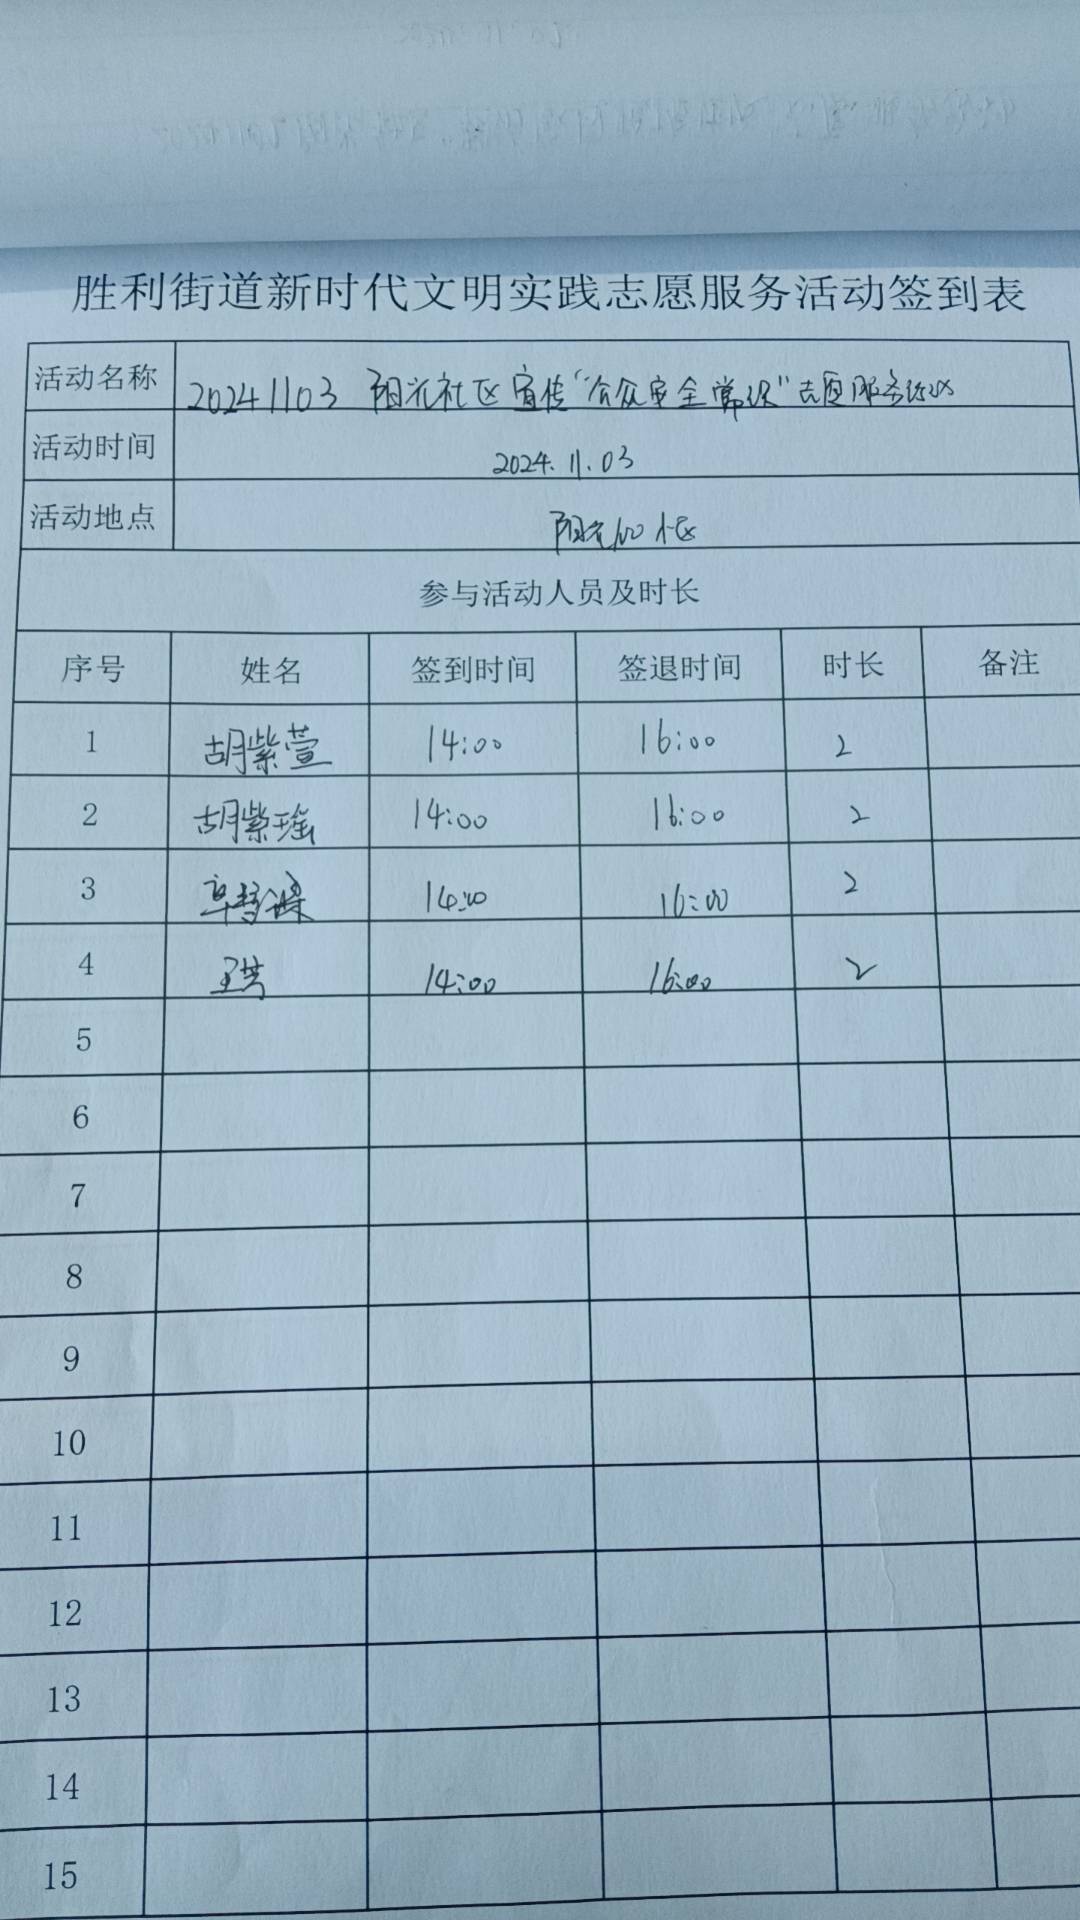 胜利街道新时代文明实践志愿服务活动签到表
活动名称 20241103 阳光社区宣传"公众安全常识"志愿服务活动
活动时间 2024.11.03
活动地点 阳光 小区
参与活动人员及时长
序号 姓名 签到时间 签退时间 时长 备注
1 胡紫萱 14:00 16:00 2
2 胡紫瑶 14:00 16:00 2
3 14:00 16:00 2
4 14:00 16:00 2
5
6
7
8
9
10
11
12
13
14
15